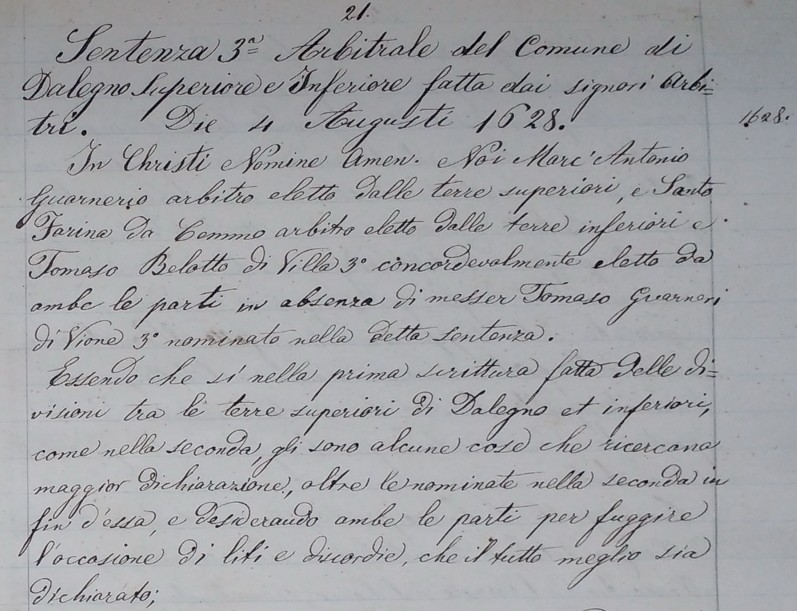 21.
Sentenza 3ª Arbitrale del Comune di
Dalegno Superiore e Inferiore fatta dai signori Arbi=
tri. Die 4 Augusti 1628.
1628.
In Christi Nomine Amen. Noi Marc'Antonio
Guarnerio arbitro eletto dalle terre superiori, e Santo
Farina da Cemmo arbitro eletto dalle terre inferiori e
Tomaso Belotto di Villa 3º concordevalmente eletto da
ambe le parti in absenza di messer Tomaso Guarneri
di Vione 3º nominato nella detta sentenza.
Essendo che sì nella prima scrittura fatta delle di=
visioni tra le terre superiori di Dalegno et inferiori,
come nella seconda, gli sono alcune cose che ricercana
maggior dichiarazione, oltre le nominate nella seconda in
fin d'essa, e desiderando ambe le parti per fuggire
l'occasione di liti e discordie, che il tutto meglio sia
dichiarato;